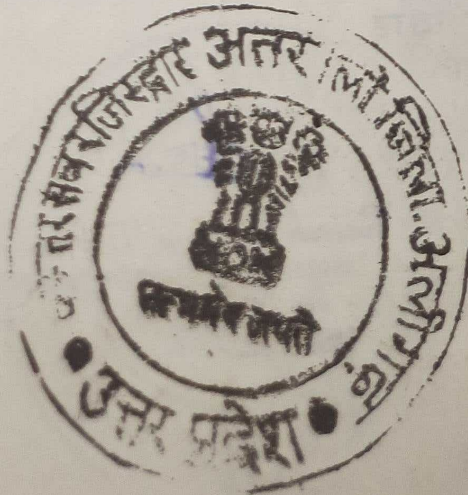 दफ्तर सबरजिस्ट्रार अतरौली जिला. अलीगढ़
सत्यमेव जयते
उत्तर प्रदेश